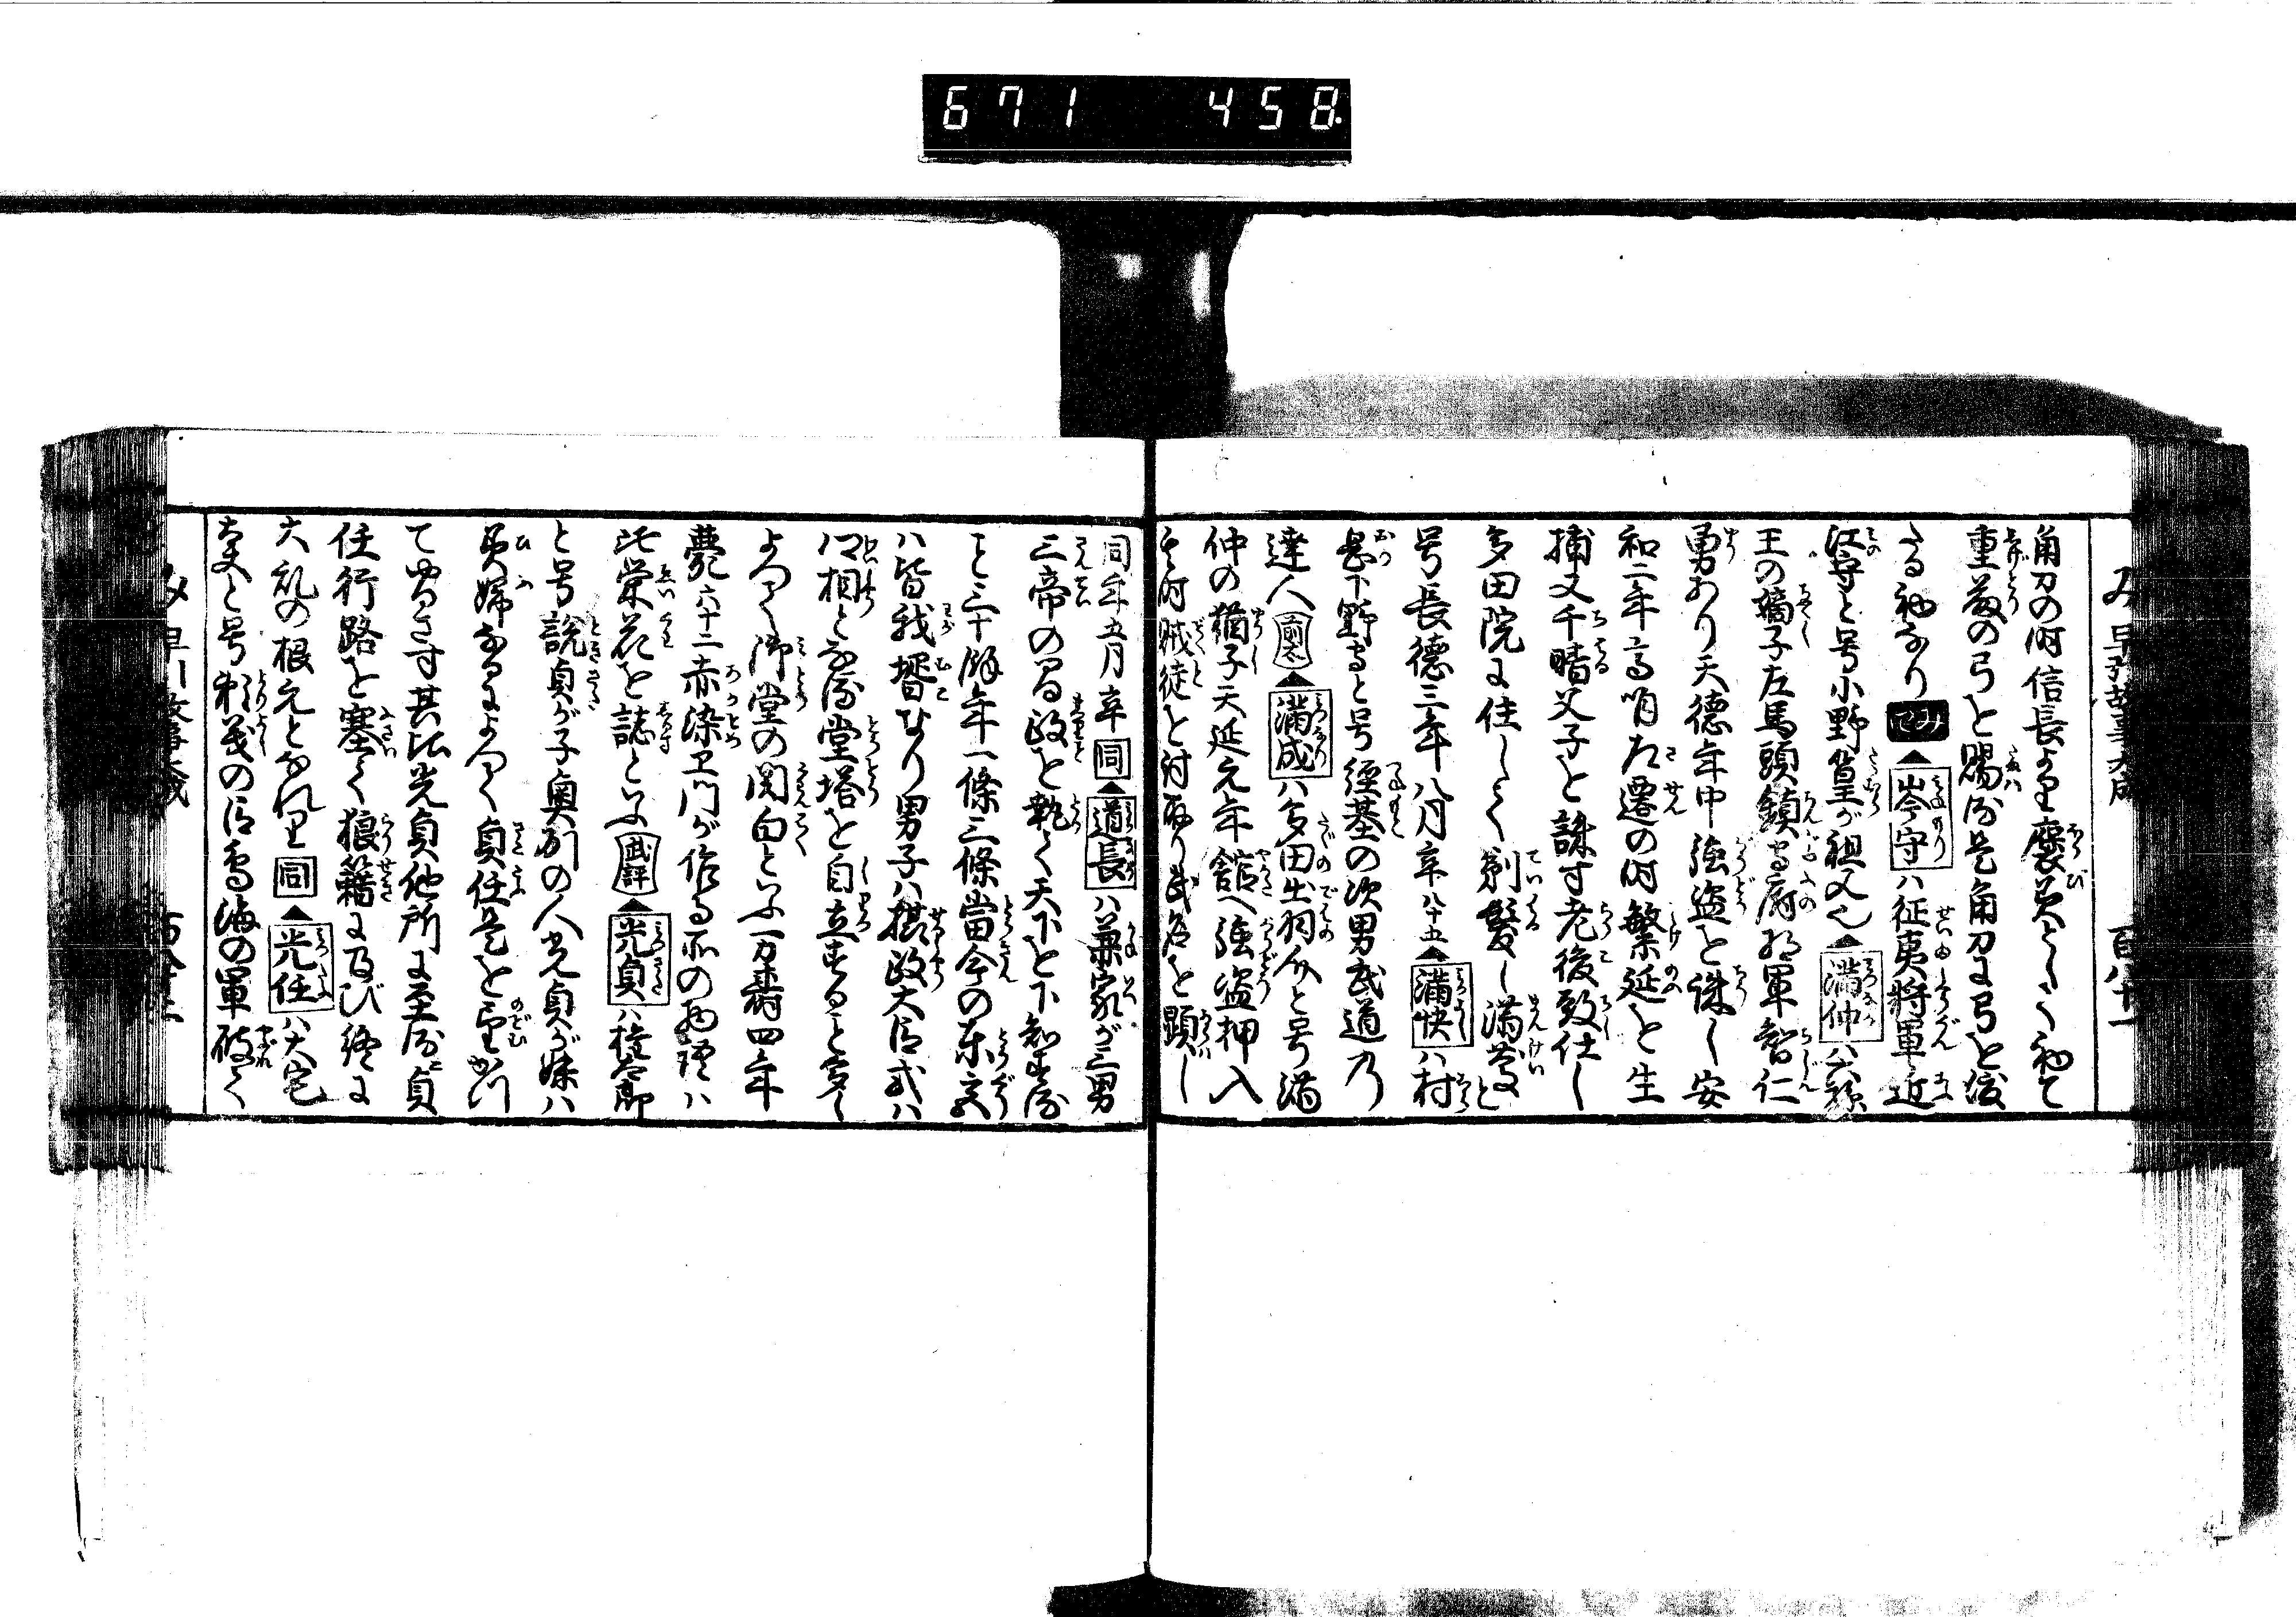 671 458
み 早引故事大成 百八十一
角力の時信長より褒美として初て
重藤の弓を賜る是角力に弓を渡
たる初なり▲岑守ハ征夷将軍近
江守と号小野篁が祖父也▲満仲ハ六孫
王の嫡子左馬頭鎮守府将軍智仁
勇あり天徳年中強盗を誅し安
和二年高明左遷の時繁延を生
捕又千晴父子を誅す老後致仕し
多田院に住して剃髪し満慶と
号長徳三年八月卒八十五▲満快ハ村
岳下野守と号経基の次男武道乃
達人▲満成ハ多田出羽介と号満
仲の猶子天延元年舘へ強盗押入
其時賊徒を討取り武名を顕し
同年五月卒同▲道長ハ兼家が三男
三帝の間政を執て天下を下知する
こと三十餘年一條三條當今の東宮
ハ皆我壻なり男子ハ摂政大臣或ハ
卿相となる堂塔を自立すること多し
よつて御堂の関白といふ万寿四年
薨六十二赤染卫門が作る所の物語ハ
此栄花を誌といふ武評▲光貞ハ権太郎
と号説貞が子奥州の人光貞が妹ハ
美婦なるによつて貞任是を望めバ
て肯ざす其比光貞他所に至る貞
任行路を塞て狼籍に及び終に
大乱の根元となれり同▲光任ハ大宅
太夫と号頼義の臣鳥海の軍破て